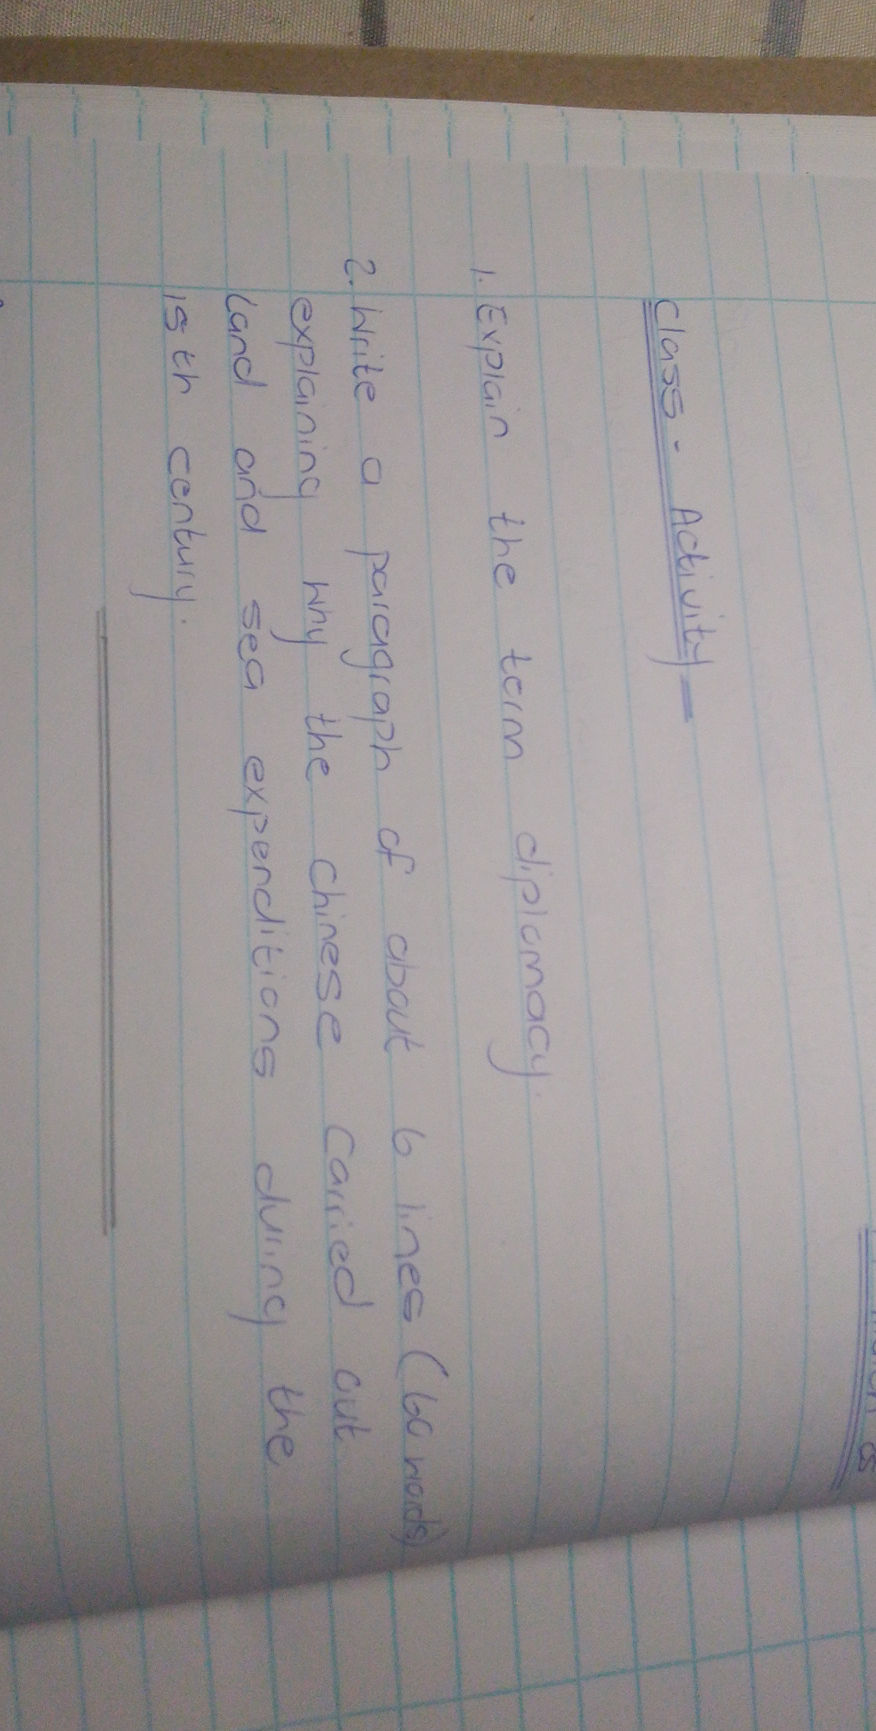 Class - Activity -
1. Explain the term diplomacy.
2. Write a paragraph of about 6 lines (60 words)
explaining why the chinese carried out
land and sea expenditions during the
15th century.